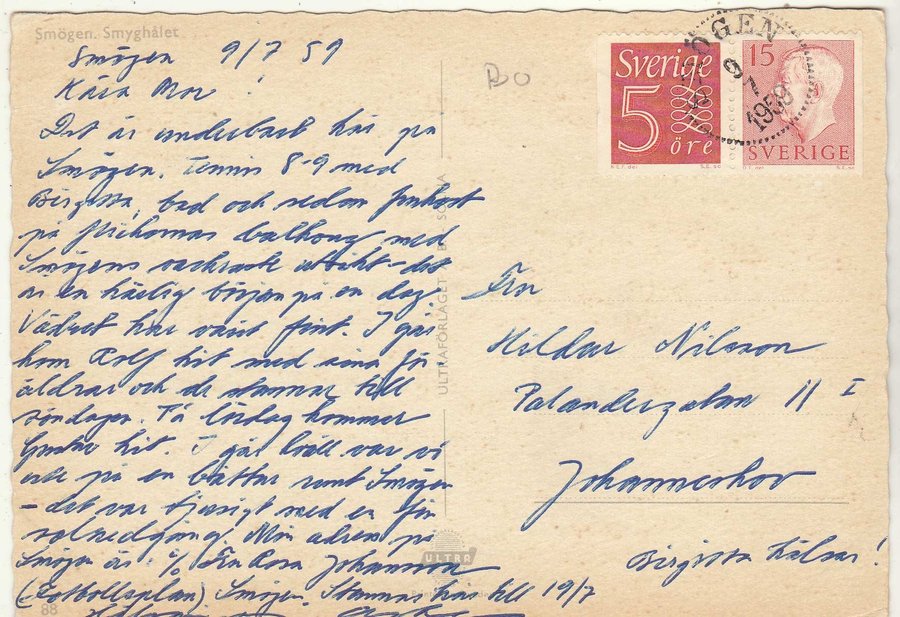 Smögen. Smyghålet
Smögen 9/7 59
Kära Mor!
Det är underbart här på
Smögen. Tennis 8-9 med
Birgitta, bad och sedan frukost
på balkong med
Smögens vackraste utsikt - det
är en härlig början på en dag.
Vädret har varit fint. I går
kom Rolf hit med sina för
äldrar och de stannar till
söndagen. På lördag kommer
Gustav hit. I går kväll var vi
ute på en båttur runt Smögen
- det var tjusigt med en fin
solnedgång. Min adress på
Smögen är c/o Fru Rosa Johansson
(Fotbollsplan) Smögen. Stannar här till 19/7
88
ULTRAFÖRLAGET
SOLNA
ULTRA
BO
Sverige
5
öre
15
SVERIGE
SMÖGEN
9 7
1959
Fru
Hildur Nilsson
Palandergatan 11 I
Johanneshov
Birgitta hälsar!